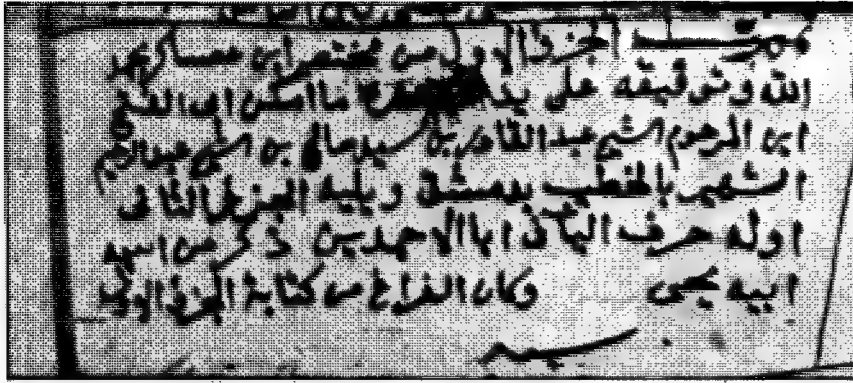 نجز الجزء الاول من مختصر ابن عساكر بحمد
الله وتوفيقه على يد ما امكن ابى الفتح
ابن المرحوم الشيخ عبد القادر بن السيد صالح بن الشيخ عبد الرحيم
الشهير بالخطيب بدمشق ويليه الجزء الثانى
اوله حرف فى ابا الاحمدين ذكر من اسمه
ابيه يحيى وكان الفراغ من كتابة الجزء الاول